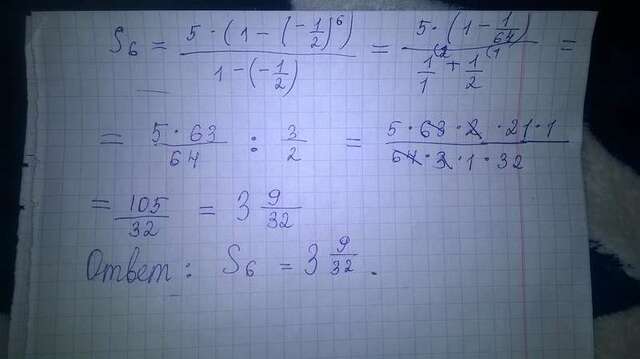 S₆ = (5 · (1 - (-1/2)⁶)) / (1 - (-1/2)) = (5 · (1 - 1/64)) / (1/1⁽² + 1/2⁽¹) =
= (5 · 63)/64 : 3/2 = (5 · 63 · 2 · 21 · 1)/(64 · 3 · 1 · 32)
= 105/32 = 3 9/32
Ответ: S₆ = 3 9/32.